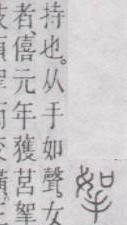 挐
持也。从手如聲。女
者。僖元年獲莒挐